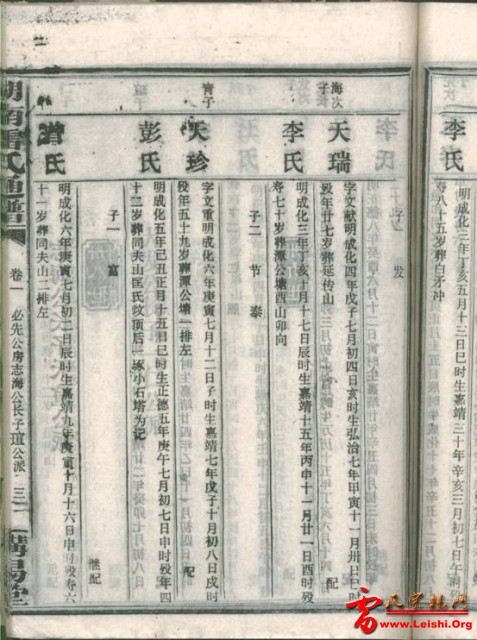 李氏
明成化二年丁亥五月十三日巳时生嘉靖三十年辛亥三月初七日午时殁
寿八十五岁葬白矛冲
子一 发
海次子
天瑞
字文献明成化四年戊子七月初四日亥时生弘治七年甲寅十一月卅日巳时
殁年廿七岁葬延传山 配
李氏
明成化三年丁亥十月十七日辰时生嘉靖十五年丙申十一月廿一日酉时殁
寿七十岁葬潭公塘西山卯向
子二 节 泰
青子
天珍
字文重明成化六年庚寅七月十二日子时生嘉靖七年戊子十月初八日戌时
殁年五十九岁葬潭公塘一排左 配
彭氏
明成化五年己丑正月十五日巳时生正德五年庚午七月初七日申时殁年四
十二岁葬同夫山匡氏坟顶后一琢小石塔为记
子一 富 继配
曾氏
明成化六年庚寅七月初二日辰时生嘉靖九年庚寅十月十六日申时殁寿六
十一岁葬同夫山二排左
氏通谱
卷一
必先公房志海公长子瑄公派
三二
雷氏宗亲网
www.Leishi.Org